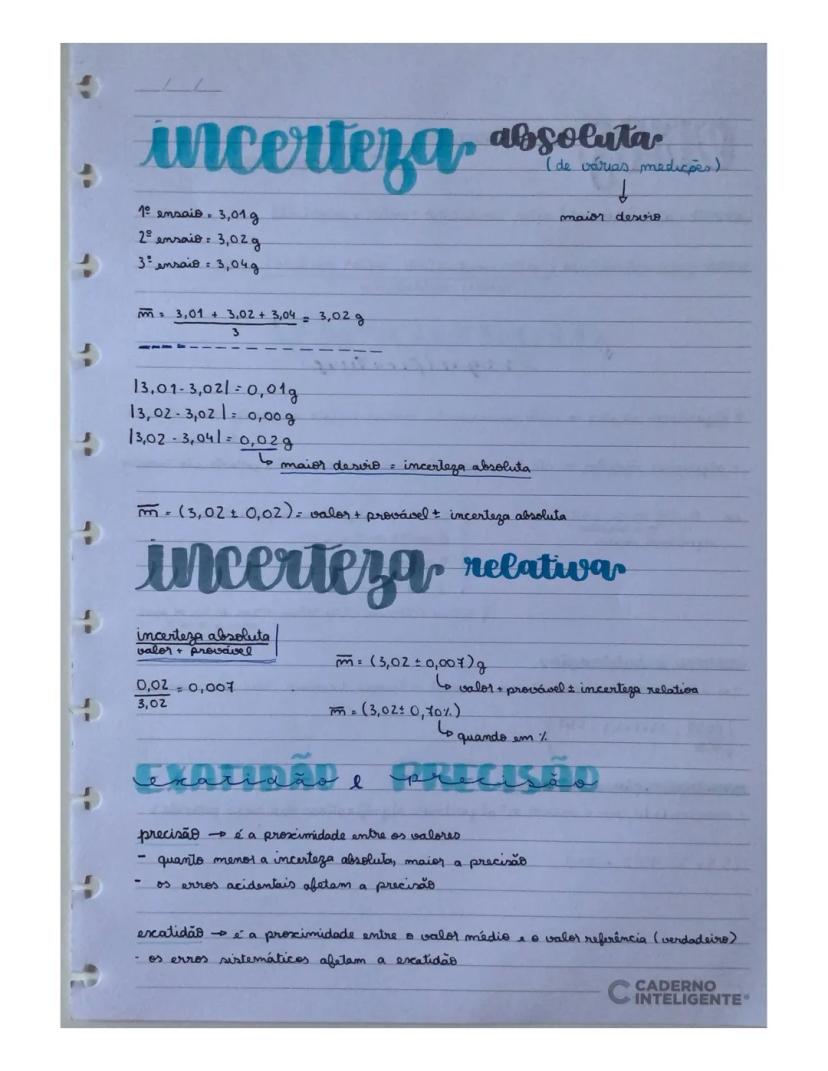 incerteza absoluta
(de várias medições)
↓
maior desvio
1º ensaio = 3,01 g
2º ensaio = 3,02 g
3º ensaio = 3,04 g
m̅ = 3,01 + 3,02 + 3,04 / 3 = 3,02 g
|3,01 - 3,02| = 0,01 g
|3,02 - 3,02| = 0,00 g
|3,02 - 3,04| = 0,02 g
↳ maior desvio = incerteza absoluta
m̅ = (3,02 ± 0,02) = valor + provável ± incerteza absoluta
incerteza relativa
incerteza absoluta
valor + provável
0,02 / 3,02 = 0,007
m̅ = (3,02 ± 0,007) g
↳ valor + provável ± incerteza relativa
m̅ = (3,02 ± 0,70%)
↳ quando em %
EXATIDÃO e PRECISÃO
exatidão e precisão
precisão → é a proximidade entre os valores
- quanto menor a incerteza absoluta, maior a precisão
- os erros acidentais afetam a precisão
exatidão → é a proximidade entre o valor médio e o valor referência (verdadeiro)
- os erros sistemáticos afetam a exatidão
CADERNO
INTELIGENTE®